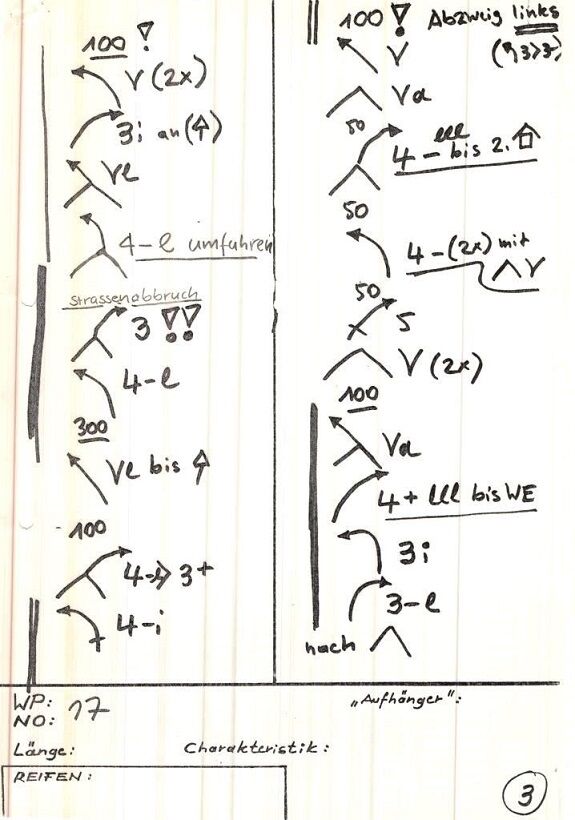 100 !
V (2x)
3i an (⇧)
Vl
4-l umfahren
strassenabbruch
3 !!
4-l
300
Vl bis ⇧
100
4-l > 3+
4-i
100 ! Abzweig links
V
Va
50
lll
4 - bis 2.
50
4-(2x) mit
V
50
5
V (2x)
100
Va
4 + lll bis WE
3i
3-l
nach
WP: 17
NO:
"Aufhänger":
Länge: Charakteristik:
REIFEN:
3